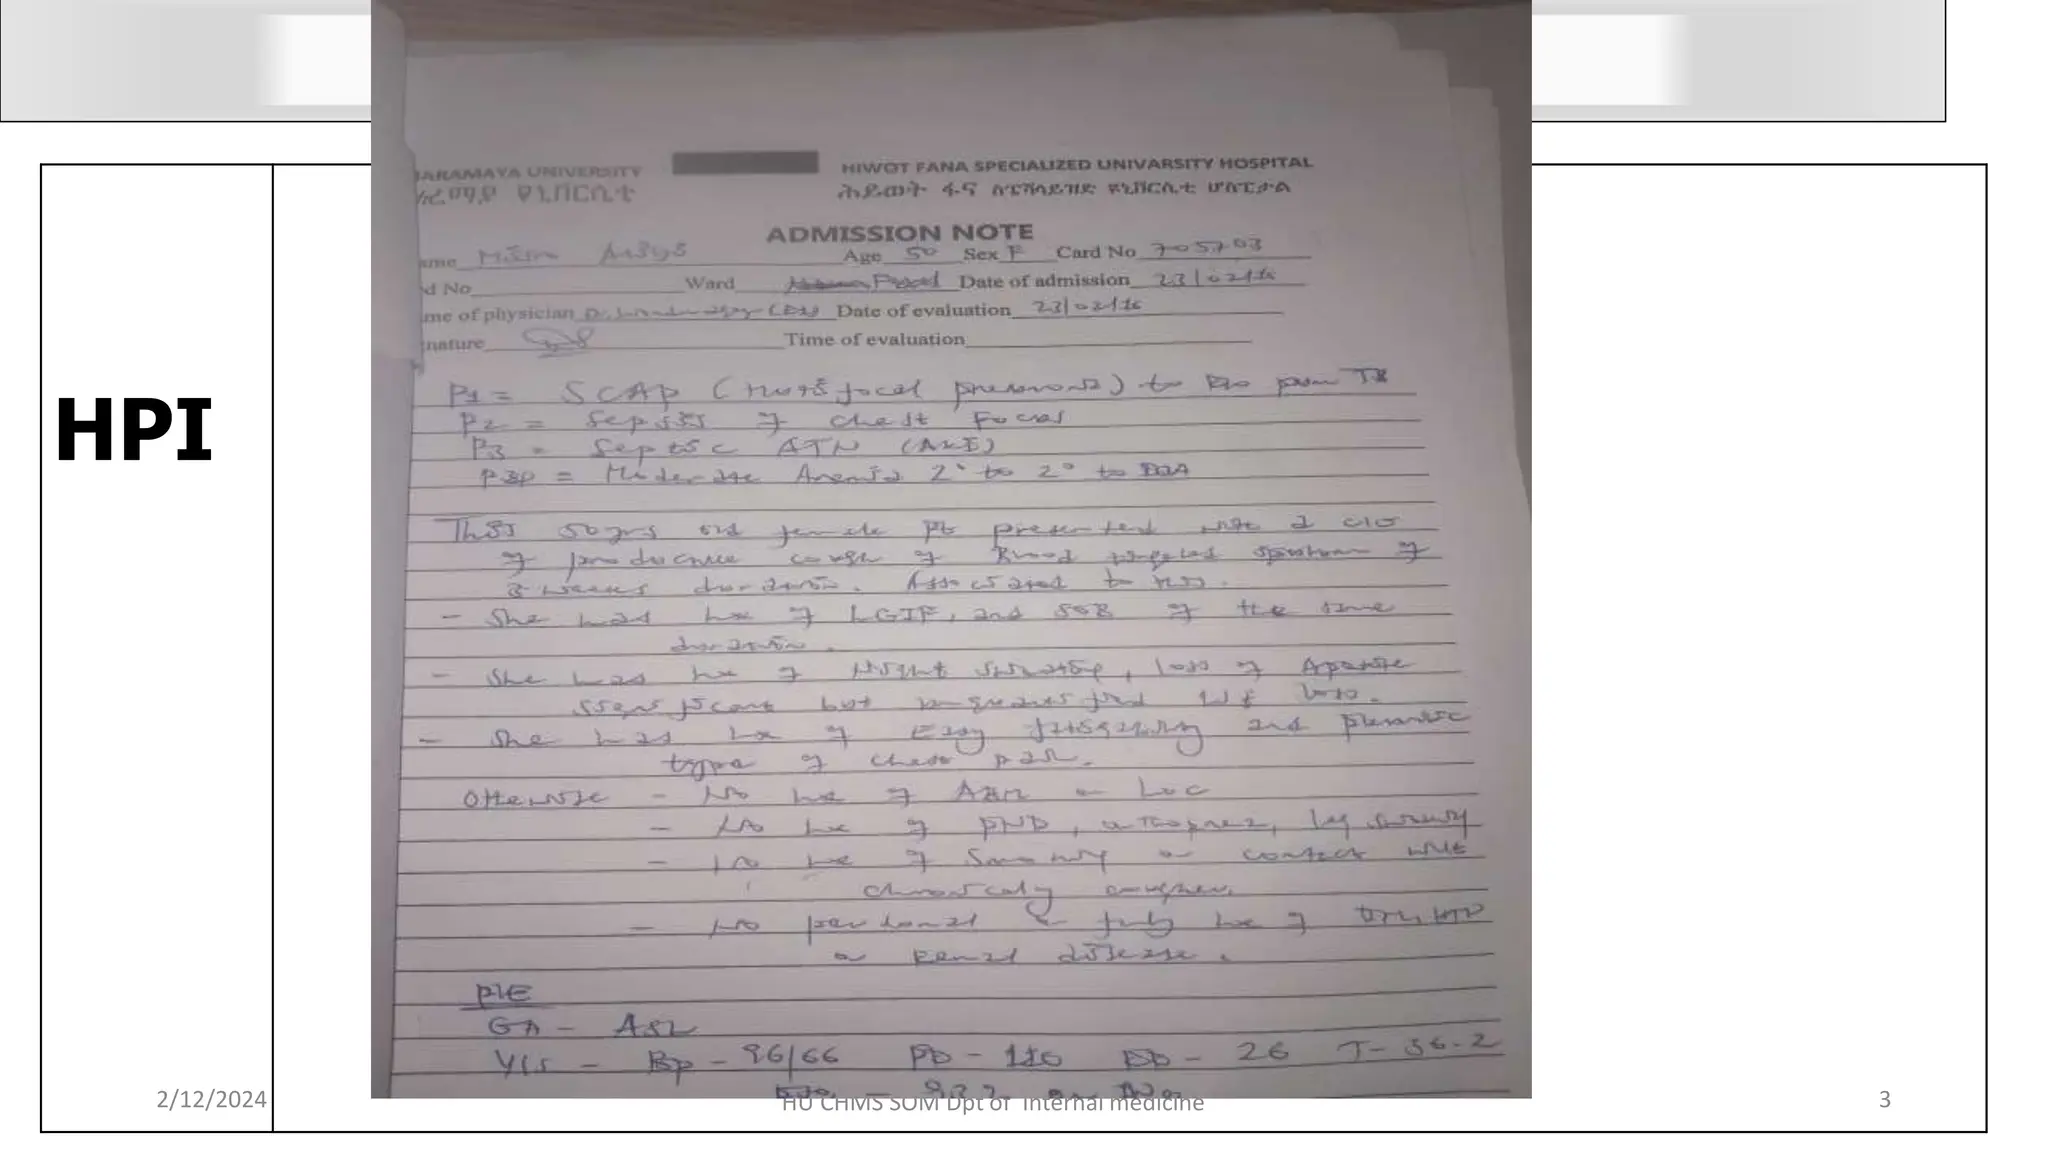 HARAMAYA UNIVERSITY HIWOT FANA SPECIALIZED UNIVARSITY HOSPITAL
ሐረማያ ዩኒቨርሲቲ ሕይወት ፋና ስፔሻላይዝድ ዩኒቨርሲቲ ሆስፒታል
ADMISSION NOTE
ame Age 50 Sex F Card No 705703
d No Ward Date of admission 23/02/16
me of physician Date of evaluation 23/02/16
nature Time of evaluation
HPI
P1 = SCAP (multifocal pneumonia) to R/o pul TB
P2 = Sepsis of chest Focus
P3 = Septic ATN (AKI)
= Moderate Anemia 2° to 2° to IDA
This 50yrs old female pt presented with a c/o
of productive cough of Blood tinged sputum of
3 weeks duration. Associated to
- She had hx of LGIF, and SOB of the same
duration.
- She had hx of Night sweating, loss of Apetite
significant but unquantified wt loss.
- She had hx of Easy fatigability and pleuritic
type of chest pain.
Otherwise - No hx of ABM or LOC
- No hx of PND, orthopnea, leg swelling
- No hx of Smoking or contact with
chronically cougher.
- No personal or family hx of DM, HTN
or Renal disease.
P/E
GA - ASL
V/S - Bp - 96/66 PR - 110 RR - 26 T - 36.2
2/12/2024 HU CHMS SOM Dpt of Internal medicine 3